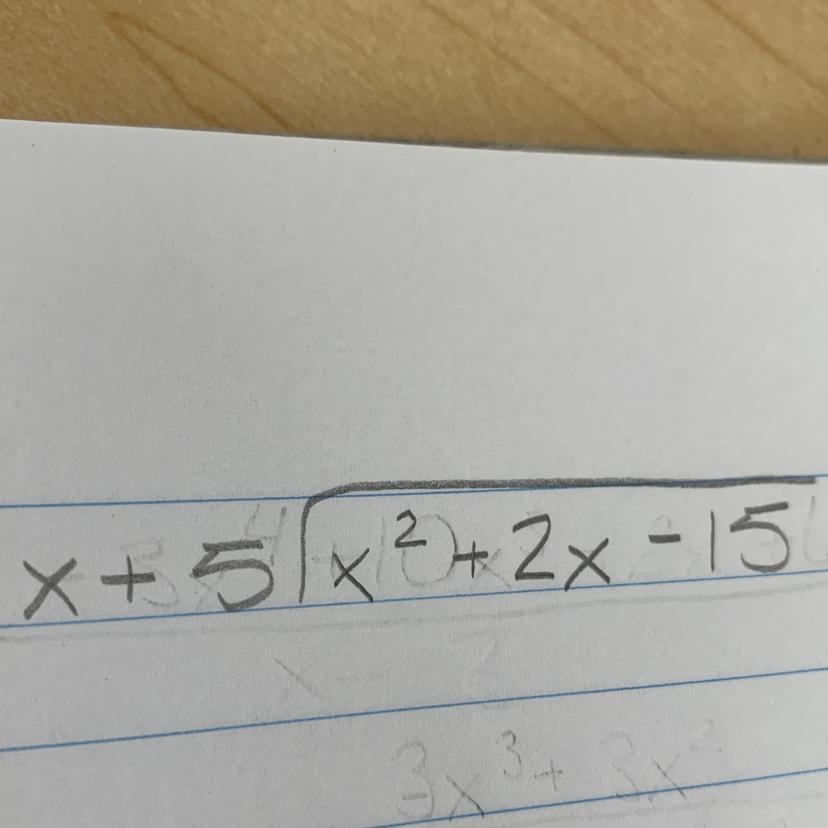 x + 5 ⟌ x² + 2x - 15
3x³ + 3x²